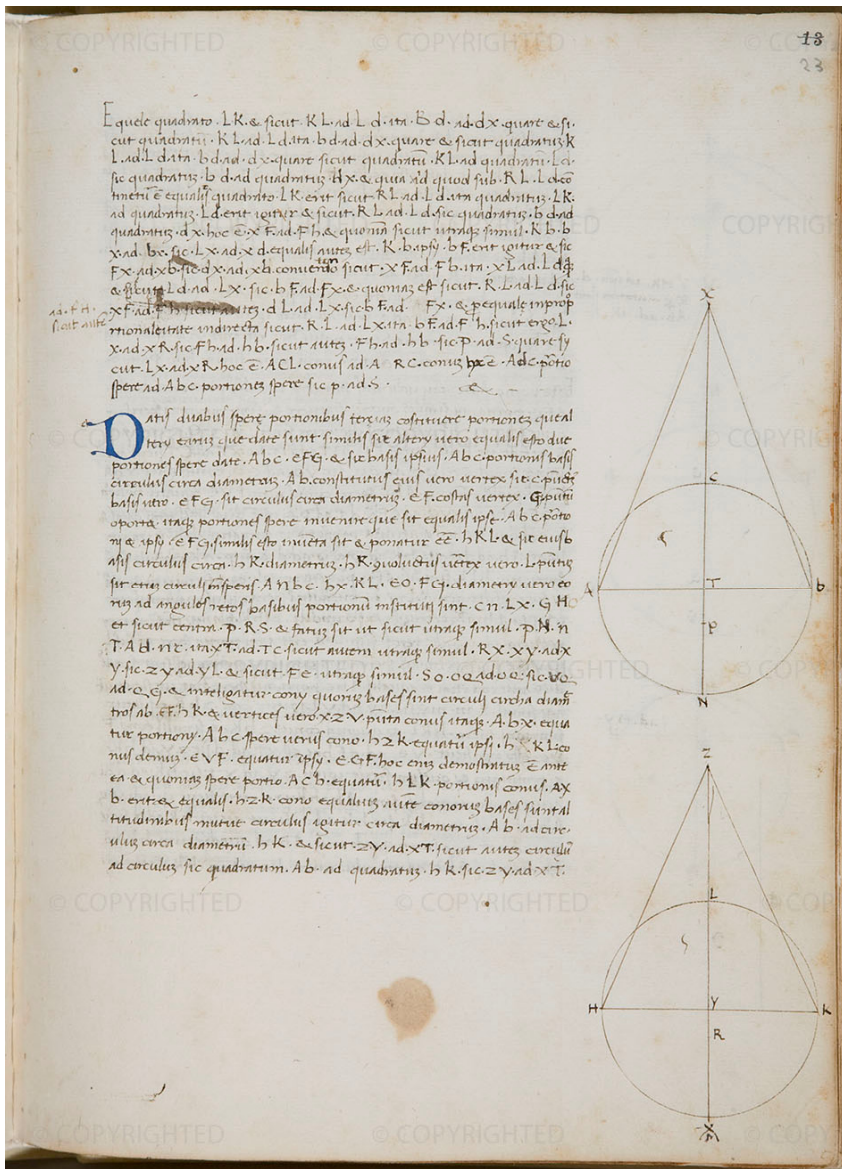 © COPYRIGHTED © COPYRIGHTED
13
23
Equele quadrato · LK · & sicut · KL · ad · L d · ita · B d · ad · d x · quare & si·
cut quadratū · KL · ad · L d · ita · b d · ad · d x · quare & sicut quadratuʒ K
L · ad · L d · ita · b d · ad · d x · quare sicut quadratū · KL · ad quadratū · L d ·
sic quadratuʒ · b d · ad quadratuʒ · d x · & quia id quod sub · R L · L d · cō
tinetū ē equalis quadrato · LK · erit sicut RL · ad · L d · ita quadratuʒ · LK ·
ad quadratuʒ · L d · erit igitur & sicut · RL · ad · L d · sic quadratuʒ · b d · ad
quadratuʒ · d x · hoc ē · x F · ad · F h · & quoniā sicut utraqʒ simul · K b · b
x · ad · bx · sic · L x · ad · x d · equalis auteʒ est · K · b · ipsy · b F · erit igitur & sic
F x · ad · x b · sic · d x · ad · x b · sicut · x F · ad · F b · ita · x L · ad · L d
& sicut · L d · ad · L x · sic · b F · ad · F x · & quoniaʒ est sicut · R L · ad · L d · sic
ad · F H ·
sicut auteʒ
x F · ad · F h sicut auteʒ · d L · ad · L x · sic · b F · ad · F x · & p equale in prop
rtionaleitate indirecta sicut · R L · ad · L x · ita · b F · ad · F h · sicut ergo · L ·
x · ad · x R · sic · F h · ad · h b · sicut auteʒ · F h · ad · h b · sic · P · ad · S · quare sy
cut · L x · ad · x R · hoc ē · A C L · conus ad · A R C · conuʒ ē · A d c
spere ad · A b c · portioneʒ spere sic · p · ad · S · &
Datis duabus spere portionibus terciaʒ costituere portioneʒ que al
teri earuʒ que date sunt similis sit altery vero equalis esto due
portiones spere date · A b c · e F G · & sit basis ipsius · A b c · portionis basis
circulus circa diametruʒ · A b · constitutus eius vero vertex sit · c · puctuʒ
basis vero · e F G · sit circulus circa diametruʒ · e F · vertex · G · puctū
oporte itaqʒ portiones spere invenire que sit equalis ipse · A b c · portio
ni & ipsy · e F G · similis esto inventa sit & ponatur ee · h K L · & sit eius b
asis circulus circa · h K · diametruʒ · h K · vertex vero · L · puctuʒ
sint etiaʒ circuli in speris A n b c · h x · K L · e o · F G · diametry vero eo
ruʒ ad angules retos basibus portionū instituti sint · c n · L x · G H
et sicut centra · P · R S · & fatuʒ sit ut sicut utraqʒ simul · P · N · n
T · Ad · N T · ita x T · ad · T C · sicut autem utraqʒ simul · R x · x y · ad x
y · sic · z y · ad · y L · & sicut · F e · utraqʒ simul · S o · o Q ad · o Q · sic · V Q
ad · Q G · & inteligatur cony quoruʒ bases sint circuli circha diam
tros ab · e F · h K · & vertices vero · x · z · v · puta conus itaqʒ · A · b x · equa
tur portiony · A b c · spere verus cono · h z K · equatū ipsy · h K L · co
nus demuʒ · e V F · equatur ipsy · e G F · hoc eniʒ demostratuʒ ē ante
ea & quoniaʒ spere portio · A c b · equatū · h L K · portionis conus · A x
b · erit & equalis · h z · K · cono equaliuʒ aute conoruʒ bases sunt al
titudinibus mutue circulus igitur circa diametruʒ · A b · ad circ·
ulus circa diametrū · h K · & sicut · z y · ad · x T · sicut auteʒ circulū
ad circuluʒ sic quadratum · A b · ad quadratuʒ · h K · sic · z y · ad · x T ·
X
C
A
T
b
P
N
Z
L
H
Y
K
R
© COPYRIGHTED © COPYRIGHTED